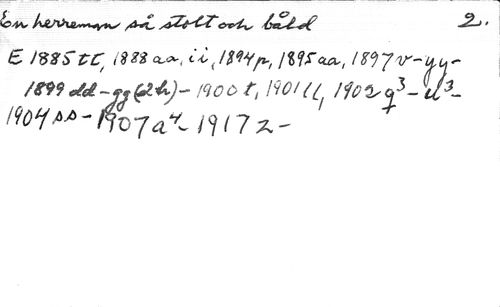 En herreman så stolt och båld 2.
E 1885 tt, 1888 aa, ii, 1894 p, 1895 aa, 1897 v-yy-
1899 dd-gg (dh)- 1900 t, 1901 ll, 1902 q³-u³-
1904 ss- 1907 a⁴- 1917 z-